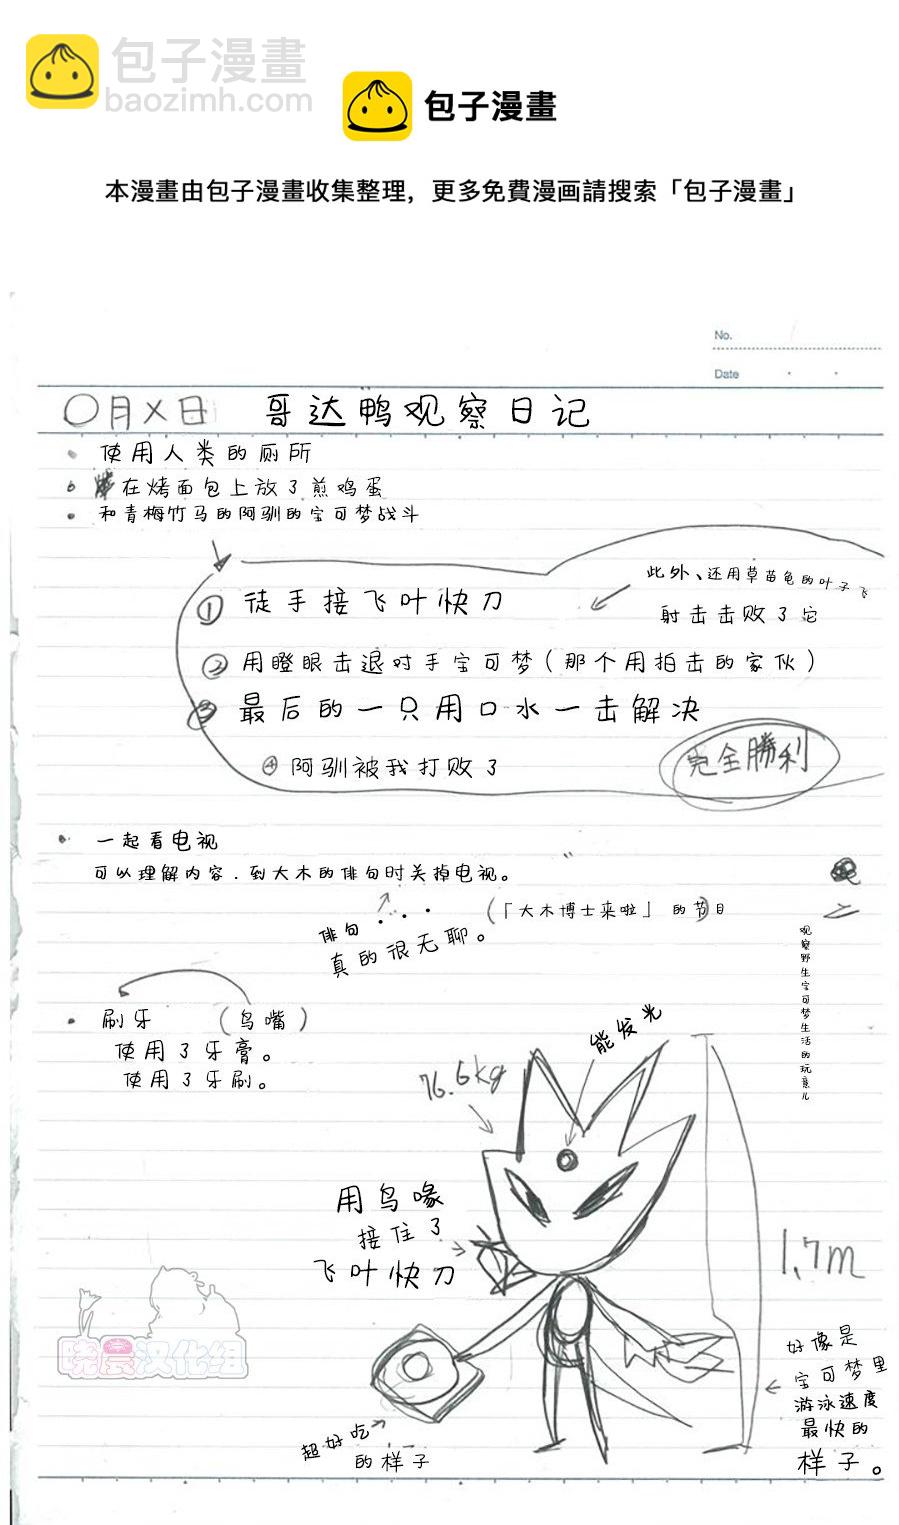 包子漫畫
baozimh.com
包子漫畫
本漫畫由包子漫畫收集整理，更多免費漫画請搜索「包子漫畫」
No.
Date
〇月×日 哥达鸭观察日记
使用人类的厕所
在烤面包上放了煎鸡蛋
和青梅竹马的阿驯的宝可梦战斗
① 徒手接飞叶快刀
此外、还用草苗龟的叶子飞
射击击败了它
② 用瞪眼击退对手宝可梦(那个用拍击的家伙)
③ 最后的一只用口水一击解决
④ 阿驯被我打败了
完全勝利
一起看电视
可以理解内容.到大木的俳句时关掉电视。
(「大木博士来啦」的节目
俳句...
真的很无聊。
观察野生宝可梦生活的玩意儿
刷牙 (鸟嘴)
使用了牙膏。
使用了牙刷。
能发光
76.6kg
用鸟喙
接住了
飞叶快刀
1.7m
好像是
宝可梦里
游泳速度
最快的
样子。
超好吃
的样子
晓昙汉化组